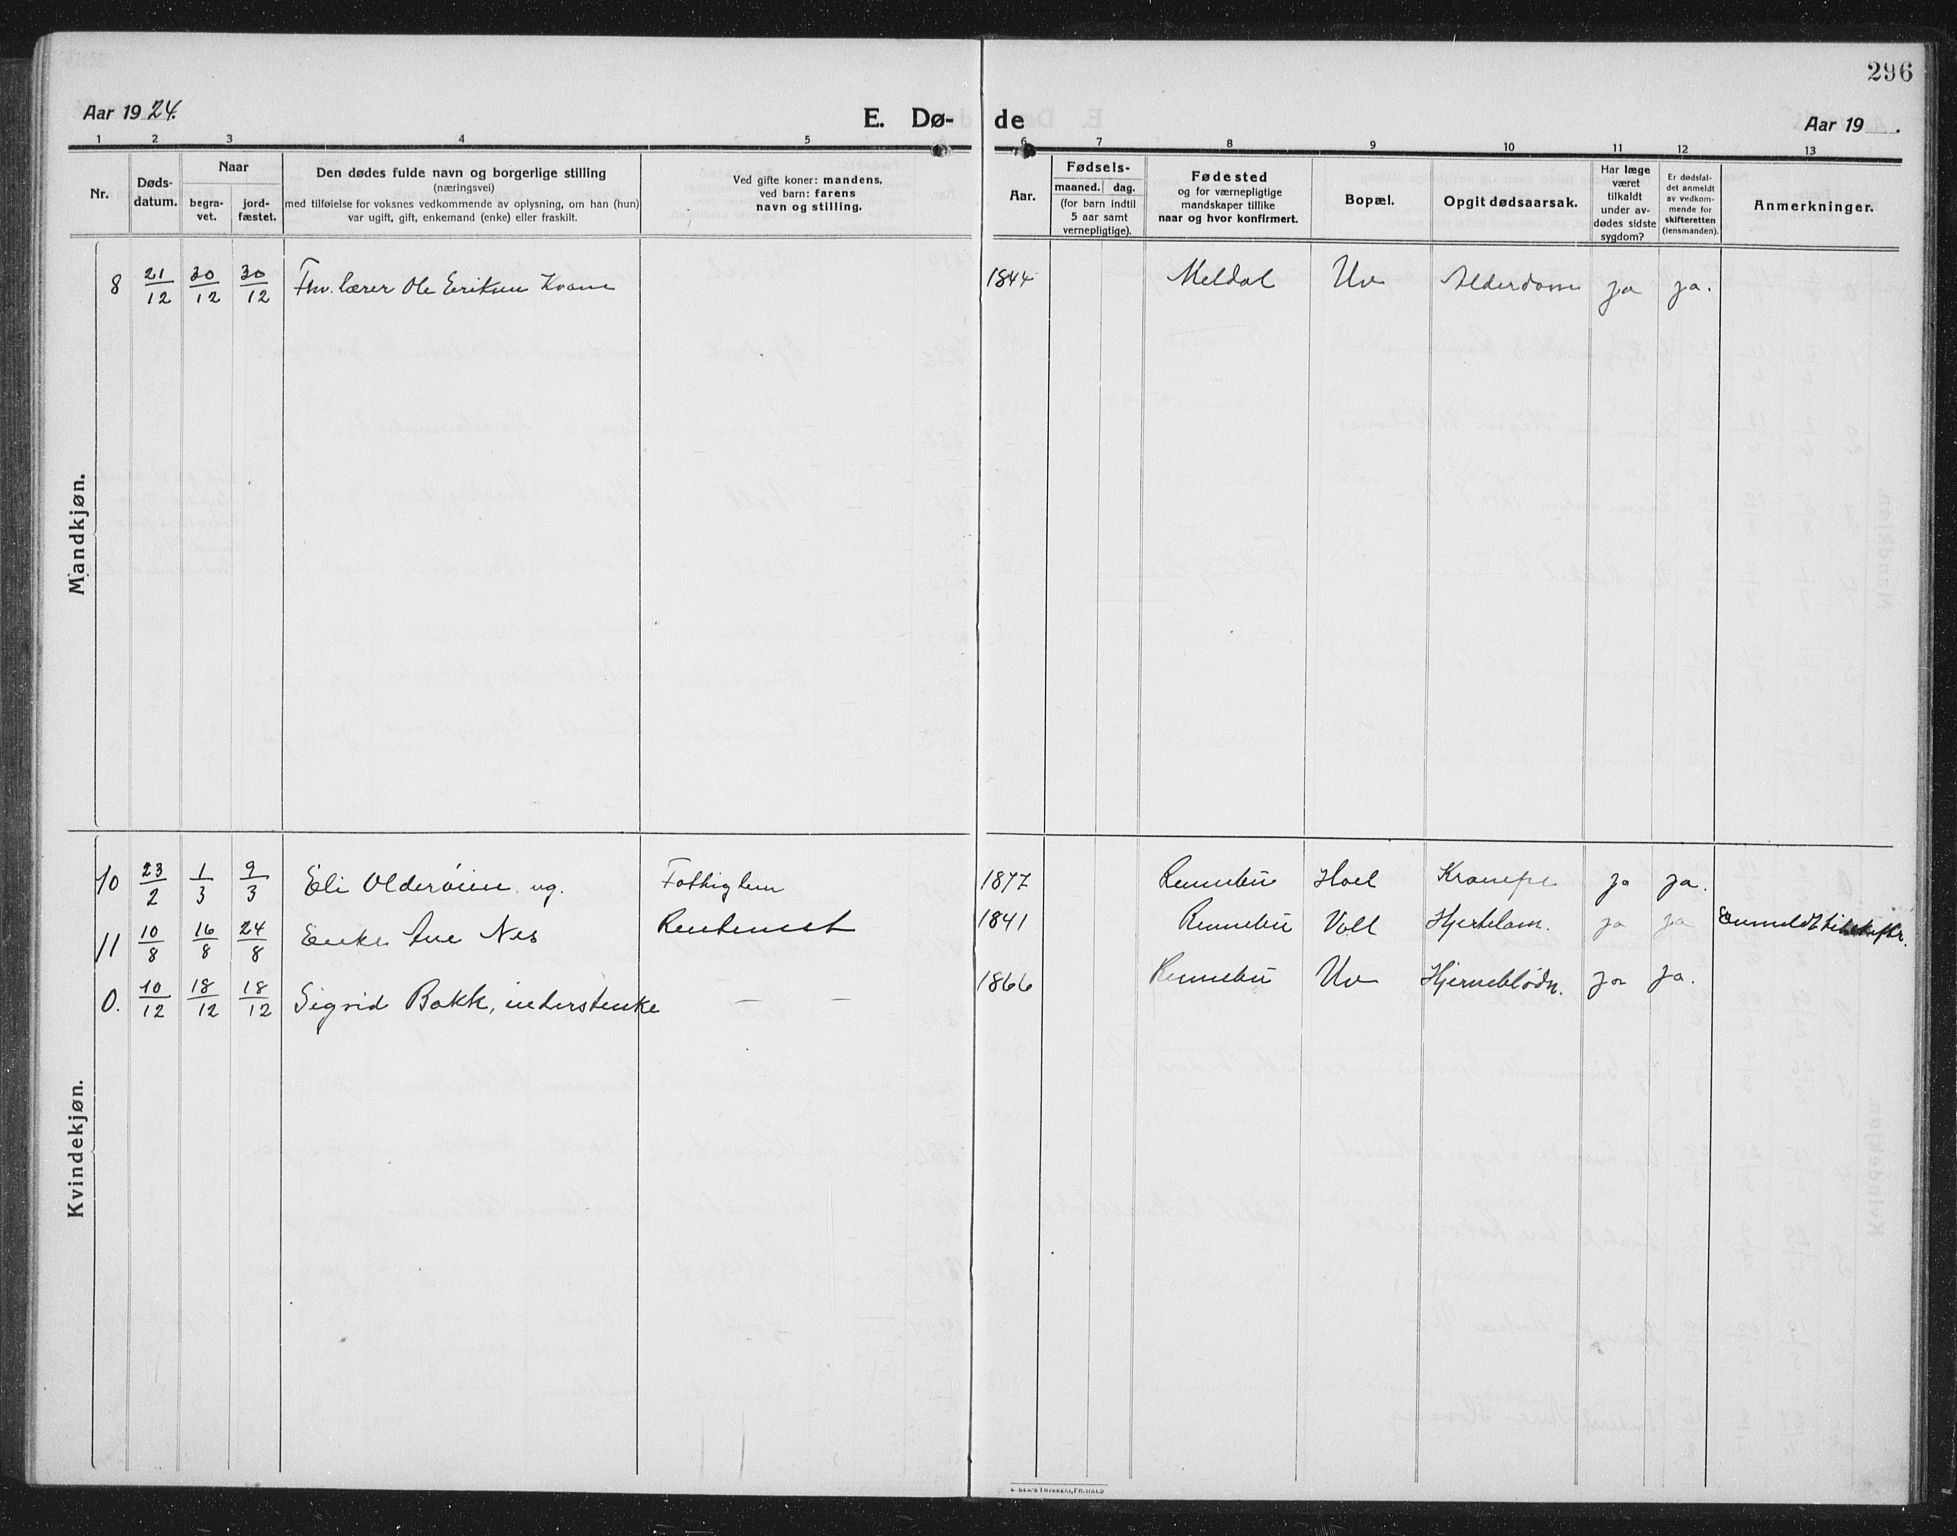 296
Aar 1924.
E. Dø- de
Aar 19 .
1 2 3 4 5 6 7 8 9 10 11 12 13
Nr.
Døds-
datum.
Naar
begra-
vet.
jord-
fæstet.
Den dødes fulde navn og borgerlige stilling
(næringsvei)
med tilføielse for voksnes vedkommende av oplysning, om han (hun)
var ugift, gift, enkemand (enke) eller fraskilt.
Ved gifte koner: mandens,
ved barn: farens
navn og stilling.
Aar.
Fødsels-
maaned. dag.
(for barn indtil
5 aar samt
vernepligtige).
Fødested
og for værnepligtige
mandskaper tillike
naar og hvor konfirmert.
Bopæl.
Opgit dødsaarsak.
Har læge
været
tilkaldt
under av-
dødes sidste
sygdom?
Er dødsfal-
det anmeldt
av vedkom-
mende for
skifteretten
(lensmanden).
Anmerkninger.
Mandkjøn.
8 21/12 30/12 30/12 Fhv. lærer Ole Eriksen Kvam 1844 Meldal Uv Alderdom ja ja.
Kvindekjøn.
10 23/2 1/3 9/3 Eli Olderøien ug. Fattiglem 1877 Rennebu Hoel ja ja.
11 10/8 16/8 24/8 Enke Ane Nes 1841 Rennebu Voll Hjertelam. ja ja
0. 10/12 18/12 18/12 Sigrid Bakk, inderstenke — — 1866 Rennebu Uv Hjerneblødn. ja ja.